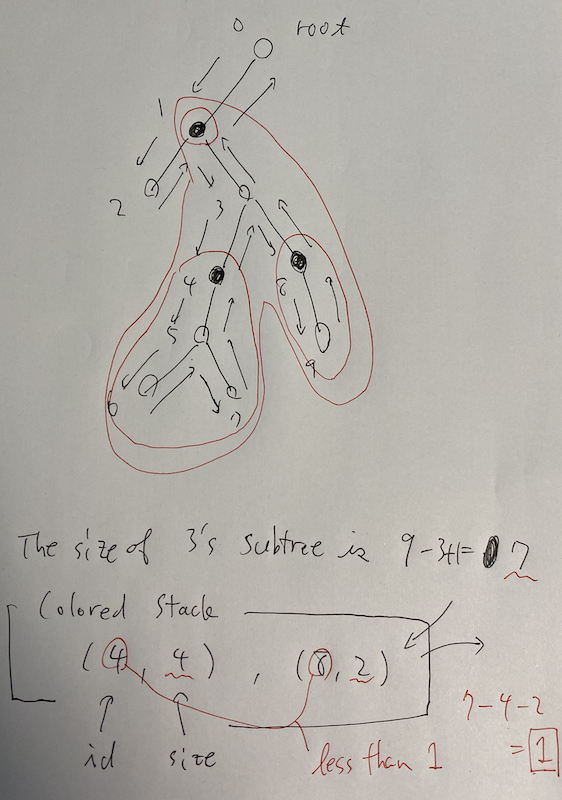 0 root
1
2
3
4
8
5
9
6
7
The size of 3's subtree is 9-3+1= 7
Colored Stack
(4, 4) , (8, 2)
7-4-2
= 1
id size less than 1